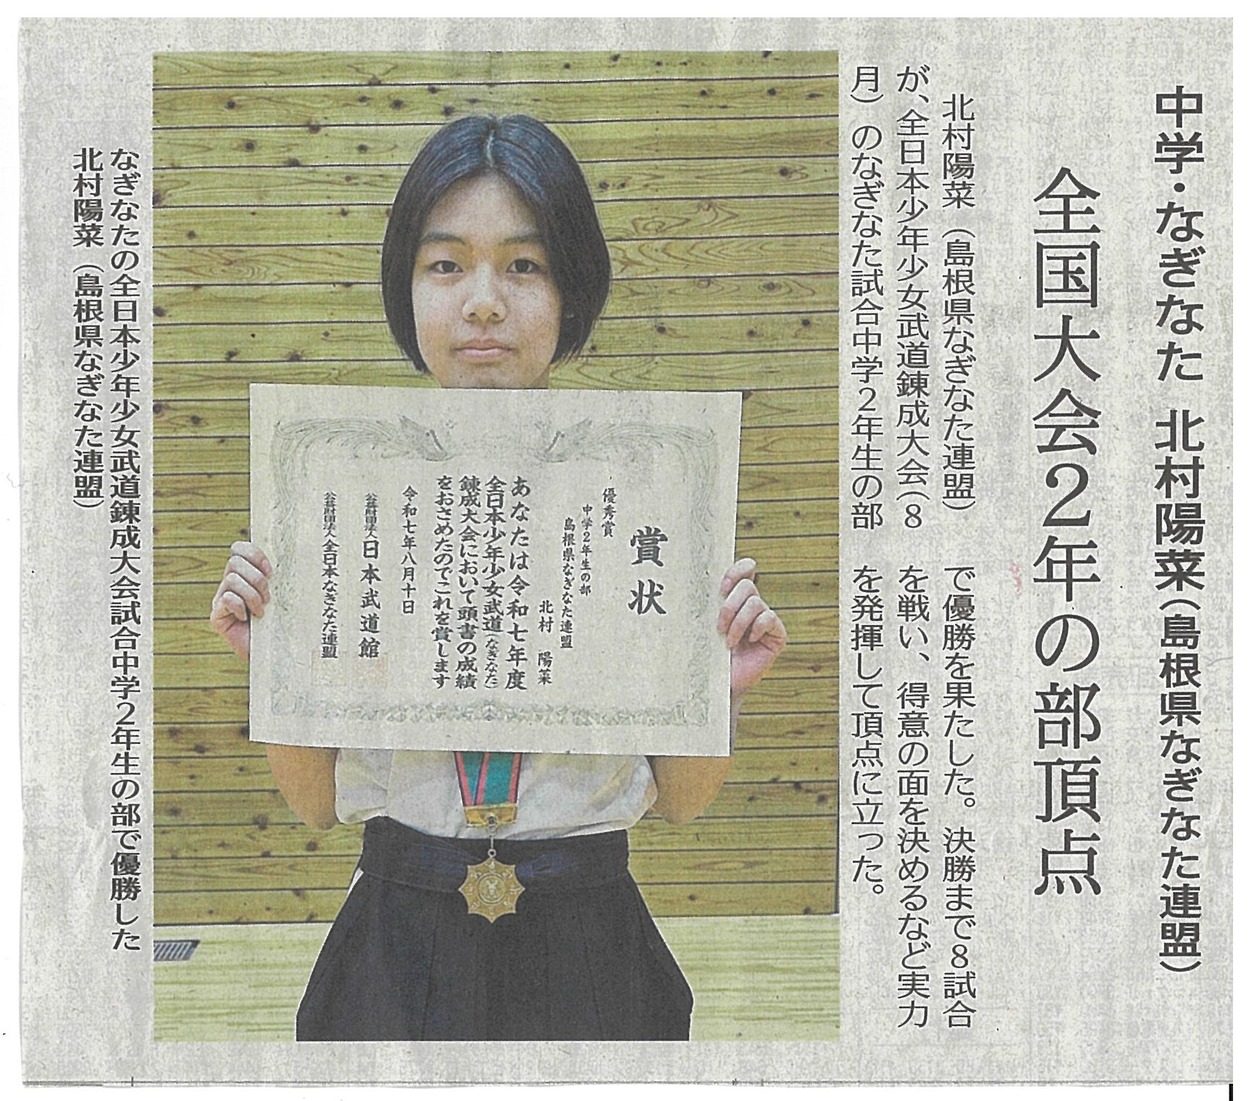 中学・なぎなた 北村陽菜(島根県なぎなた連盟)
全国大会2年の部頂点
北村陽菜(島根県なぎなた連盟)
が、全日本少年少女武道錬成大会(8
月)のなぎなた試合中学2年生の部
で優勝を果たした。決勝まで8試合
を戦い、得意の面を決めるなど実力
を発揮して頂点に立った。
賞状
優秀賞
中学2年生の部
島根県なぎなた連盟
北村 陽菜
あなたは令和七年度
全日本少年少女武道(なぎなた)
錬成大会において頭書の成績
をおさめたのでこれを賞します
令和七年八月十日
公益財団法人日本武道館
公益財団法人全日本なぎなた連盟
なぎなたの全日本少年少女武道錬成大会試合中学2年生の部で優勝した
北村陽菜(島根県なぎなた連盟)